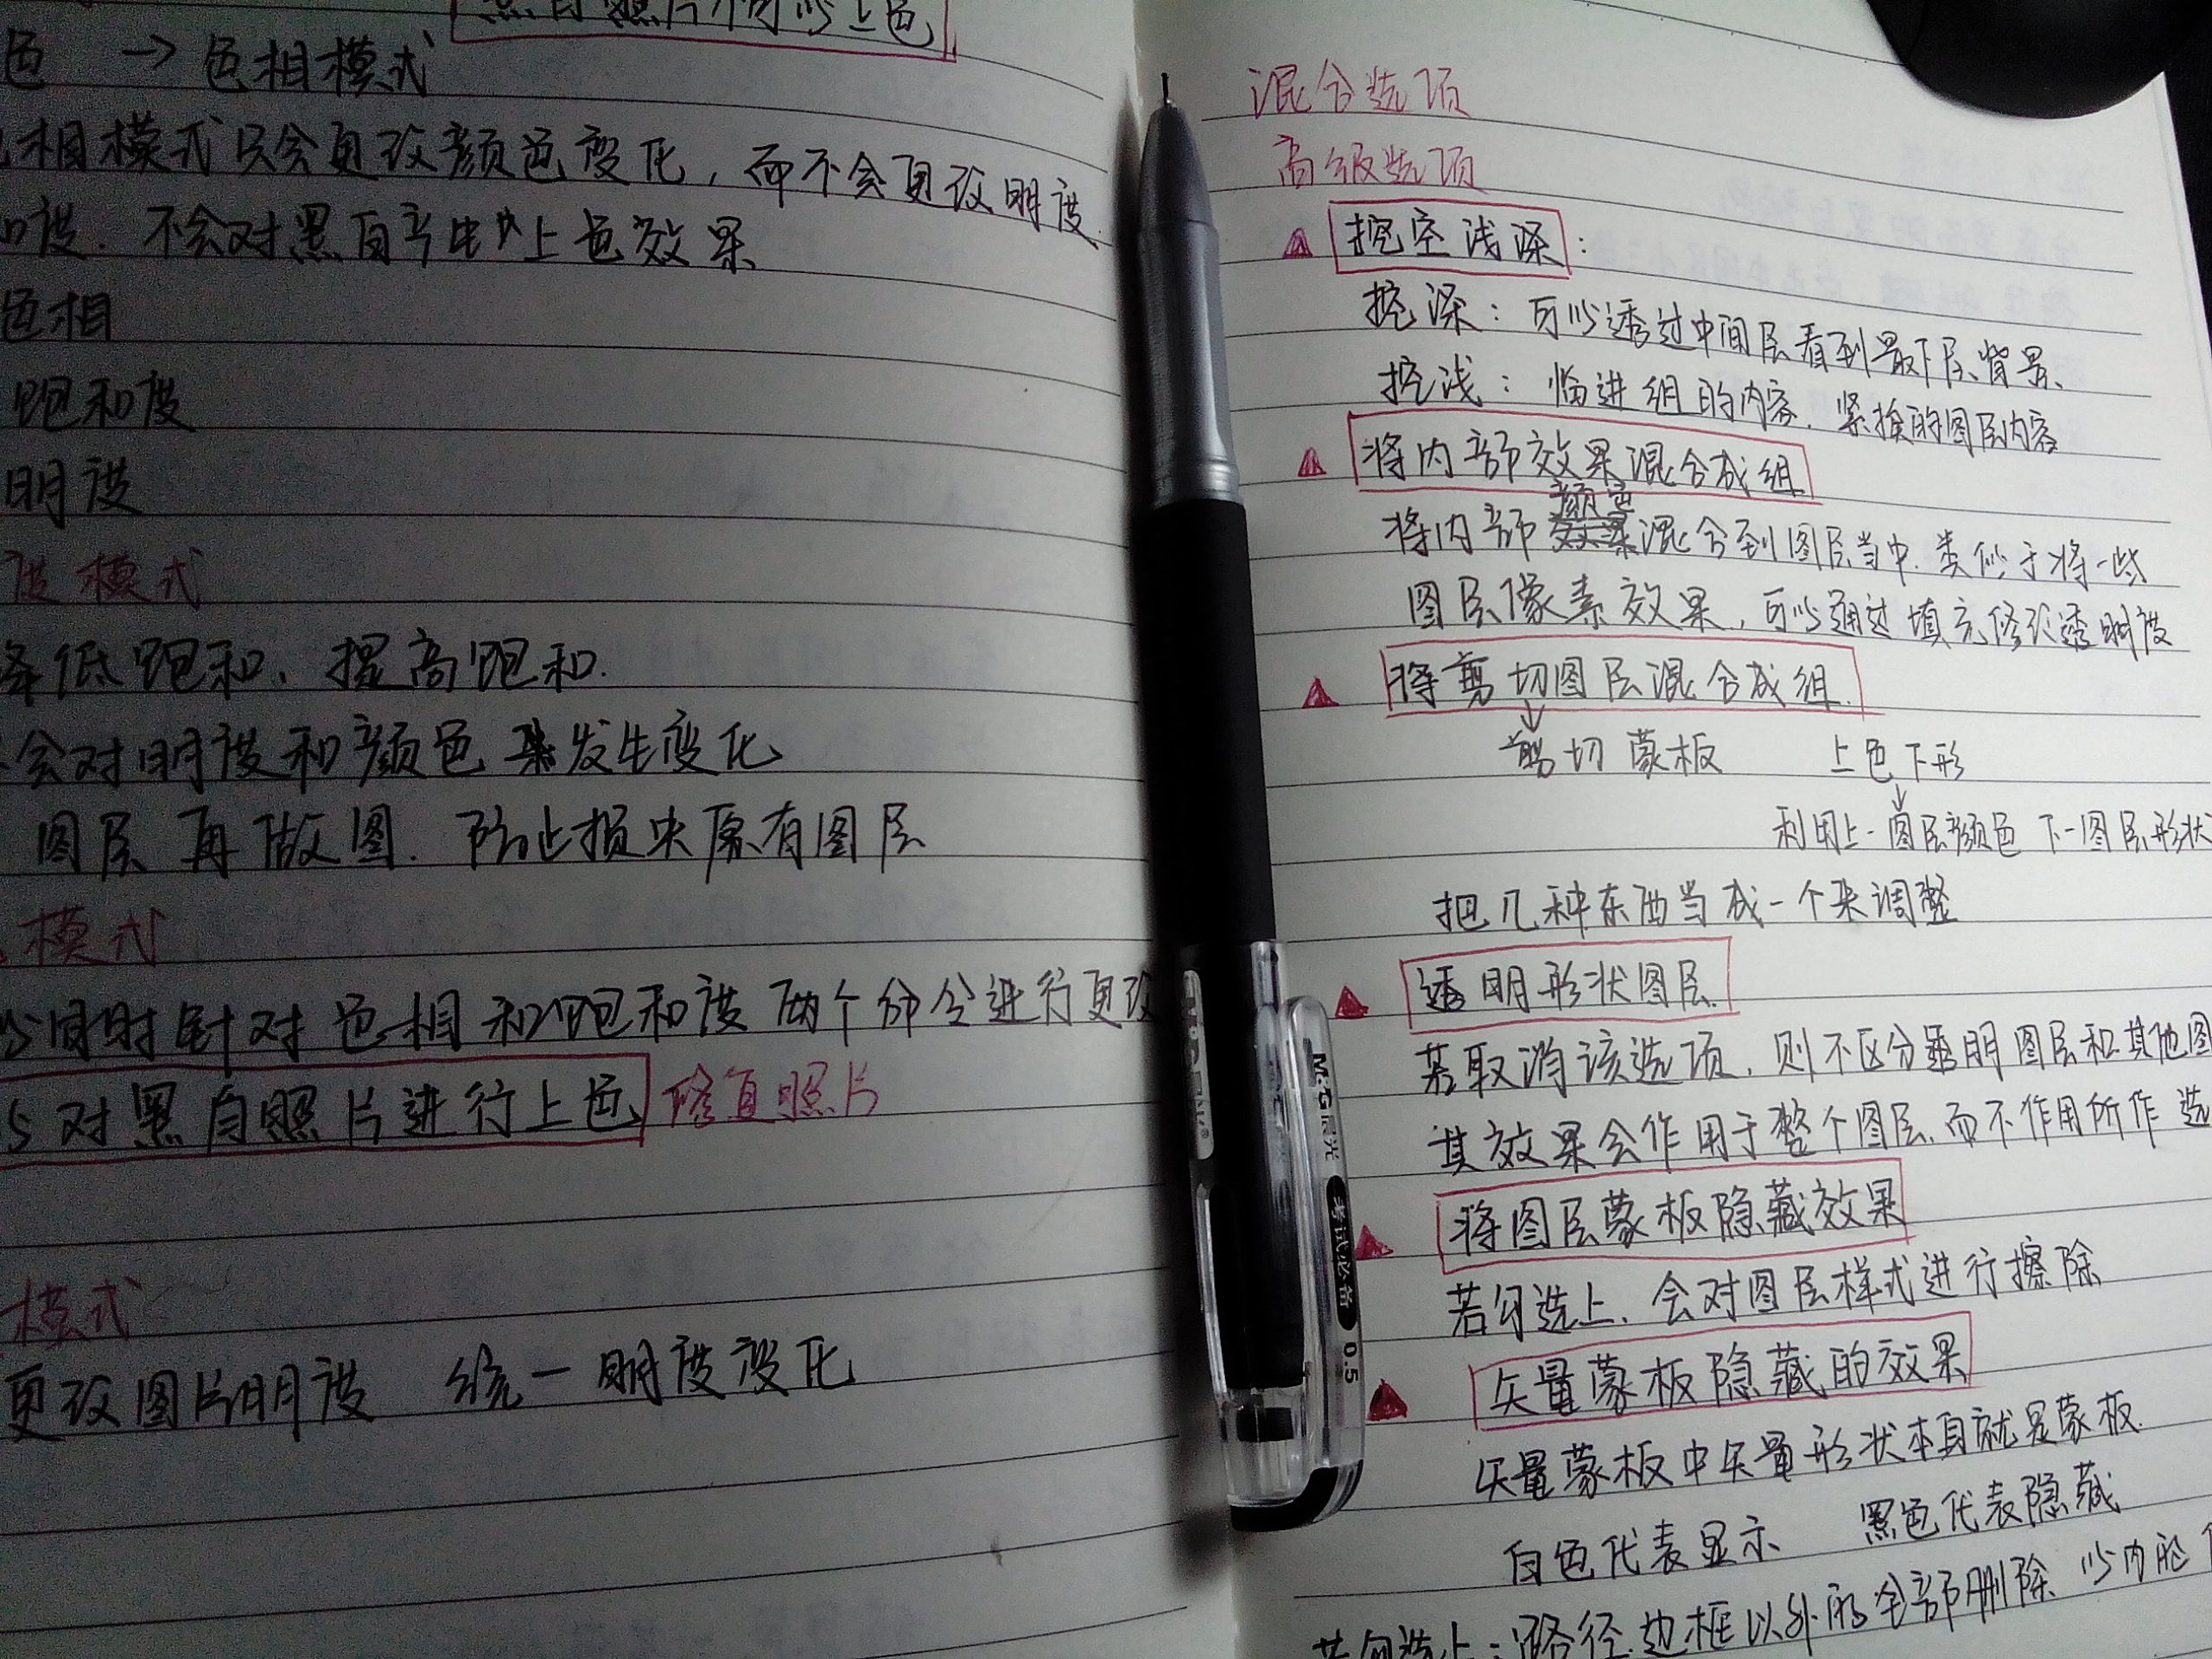 黑白照片不可以上色
色 → 色相模式
相模式只会更改颜色变化，而不会更改明度
和度.不会对黑白产生上色效果
色相
饱和度
明度
度模式
降低饱和、提高饱和.
会对明度和颜色发生变化
图层 再做图.防止损失原有图层
模式
以同时针对色相和饱和度两个命令进行更改
对黑白照片进行上色 修复照片
模式
更改图片明度 统一明度变化
M&G晨光 考试必备 0.5
混合选项
高级选项
挖空浅深：
挖深：可以透过中间层看到最下层背景、
挖浅：临进组的内容.紧挨的图层内容
将内部效果混合成组
颜色
将内部效果混合到图层当中.类似于将一些
图层像素效果，可以通过填充修改透明度
将剪切图层混合成组.
↓
剪切蒙板 上色下形
↓
利用上一图层颜色 下一图层形状
把几种东西当成一个来调整
透明形状图层
若取消该选项，则不区分透明图层和其他图
其效果会作用于整个图层.而不作用所作选
将图层蒙板隐藏效果
若勾选上.会对图层样式进行擦除
矢量蒙板隐藏的效果
矢量蒙板中矢量形状本身就是蒙板.
白色代表显示 黑色代表隐藏
若勾选上：路径.边框以外的全部删除 以内的